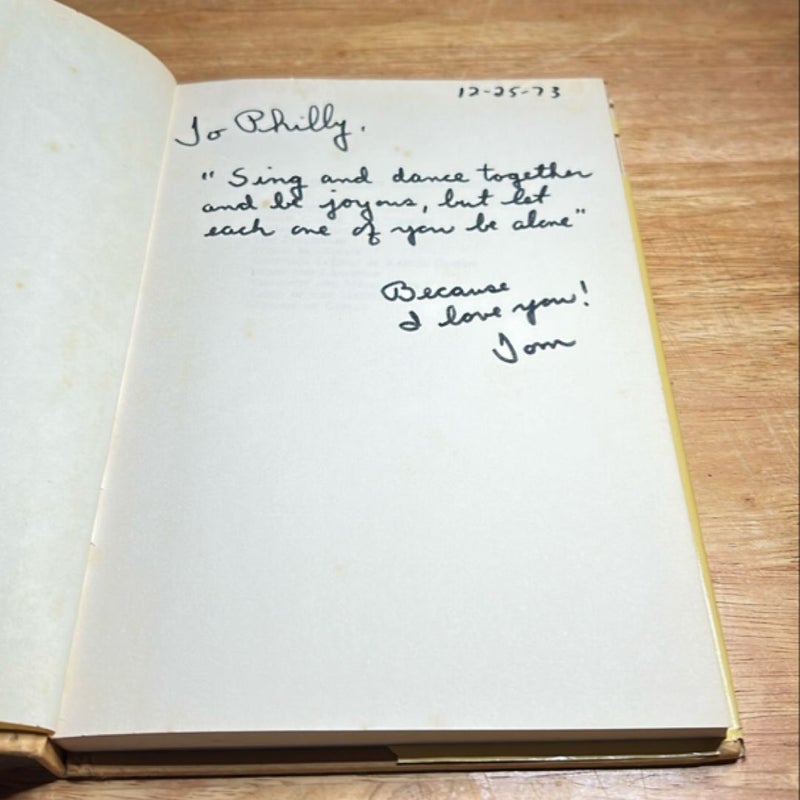 12-25-73
To Philly.
" Sing and dance together
and be joyous, but let
each one of you be alone"
Because
I love you!
Tom